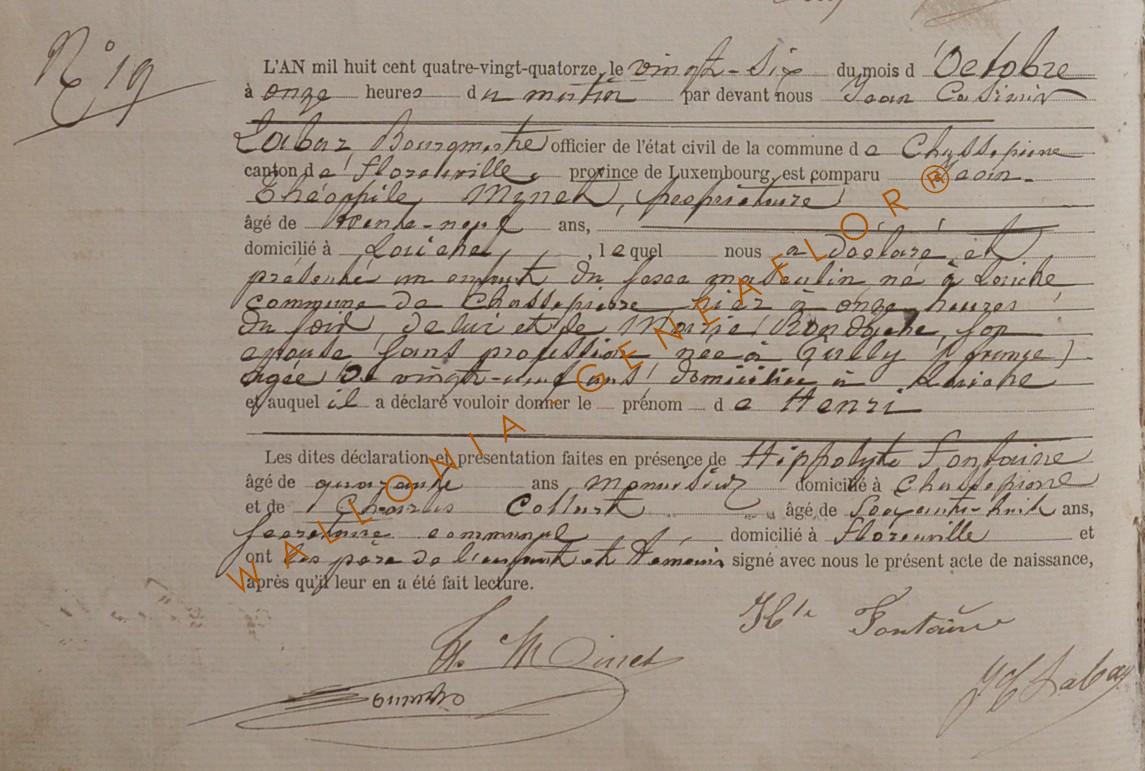 N° 19
L'AN mil huit cent quatre-vingt-quatorze, le vingt-six du mois d'Octobre
à onze heures du matin par devant nous Jean Casimir
Labaz Bourgmestre officier de l'état civil de la commune de Chassepierre
canton de Florenville, province de Luxembourg, est comparu Jean-
Théophile Minet, propriétaire
âgé de trente-neuf ans,
domicilié à Laiche, lequel nous a déclaré et
présenté un enfant du sexe masculin né à Laiche
commune de Chassepierre hier à onze heures
du soir, de lui et de Marie son
épouse sans profession née à (france)
agée de ans domiciliée à Laiche
et auquel il a déclaré vouloir donner le prénom de Henri
Les dites déclaration et présentation faites en présence de Hippolyte Fontaine
âgé de quarante ans menuisier domicilié à Chassepierre
et de Charles âgé de soixante-huit ans,
secrétaire communal domicilié à Florenville et
ont les père de l'enfant et témoins signé avec nous le présent acte de naissance,
après qu'il leur en a été fait lecture.
Hte Fontaine
Th. Minet
JC Labaz
WALLONIA - GENEAFLOR®